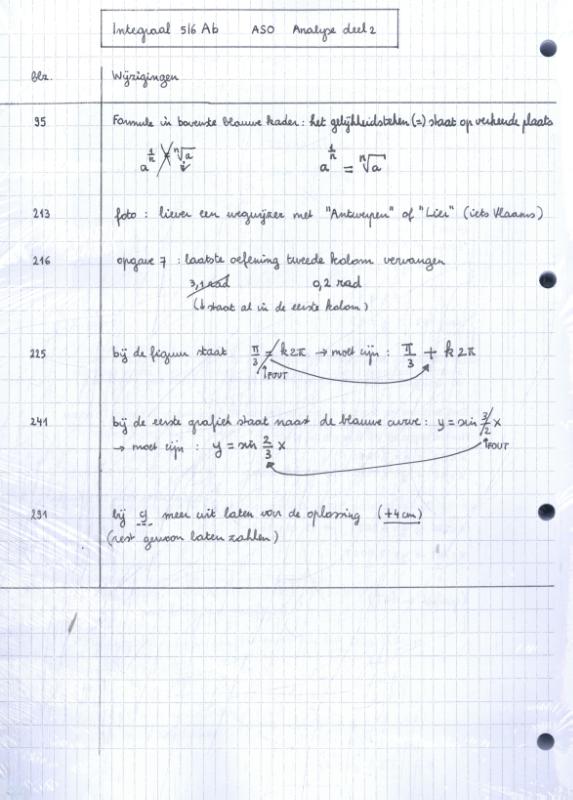 Integraal 5/6 Ab ASO Analyse deel 2
Blz. Wijzigingen
95 Formule in bovenste blauwe kader: het gelijkheidsteken (=) staat op verkeerde plaats
a^(1/n) = ⁿ√a a^(1/n) = ⁿ√a
213 foto: liever een wegwijzer met "Antwerpen" of "Lier" (iets Vlaams)
216 opgave 7: laatste oefening tweede kolom vervangen
3,1 rad 0,2 rad
(↓ staat al in de eerste kolom)
225 bij de figuur staat π/3 = k2π → moet zijn: π/3 + k2π
↑FOUT
241 bij de eerste grafiek staat naast de blauwe curve: y = sin 3/2 x
→ moet zijn: y = sin 2/3 x ↑FOUT
291 bij g meer wit laten voor de oplossing (+4cm)
(rest gewoon laten zakken)